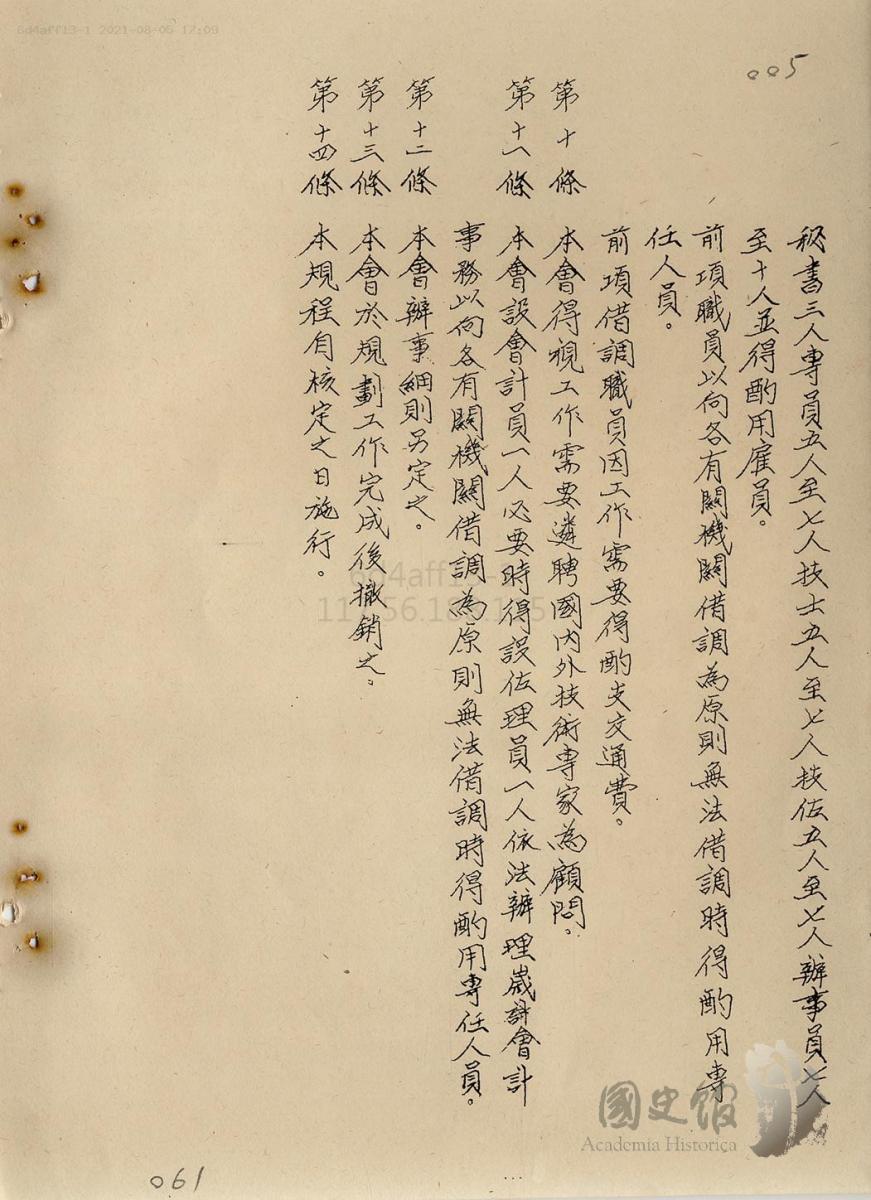 6d4aff13-1 2021-08-05 17:09
005
秘書三人專員五人至七人技士五人至七人技佐五人至七人辦事員七人
至十人並得酌用雇員。
前項職員以向各有關機關借調為原則無法借調時得酌用專
任人員。
前項借調職員因工作需要得酌支交通費。
第十條 本會得視工作需要遴聘國內外技術專家為顧問。
第十一條 本會設會計員一人必要時得設佐理員一人依法辦理歲計會計
事務以向各有關機關借調為原則無法借調時得酌用專任人員。
第十二條 本會辦事細則另定之。
第十三條 本會於規劃工作完成後撤銷之。
第十四條 本規程自核定之日施行。
國史館
Academia Historica
061